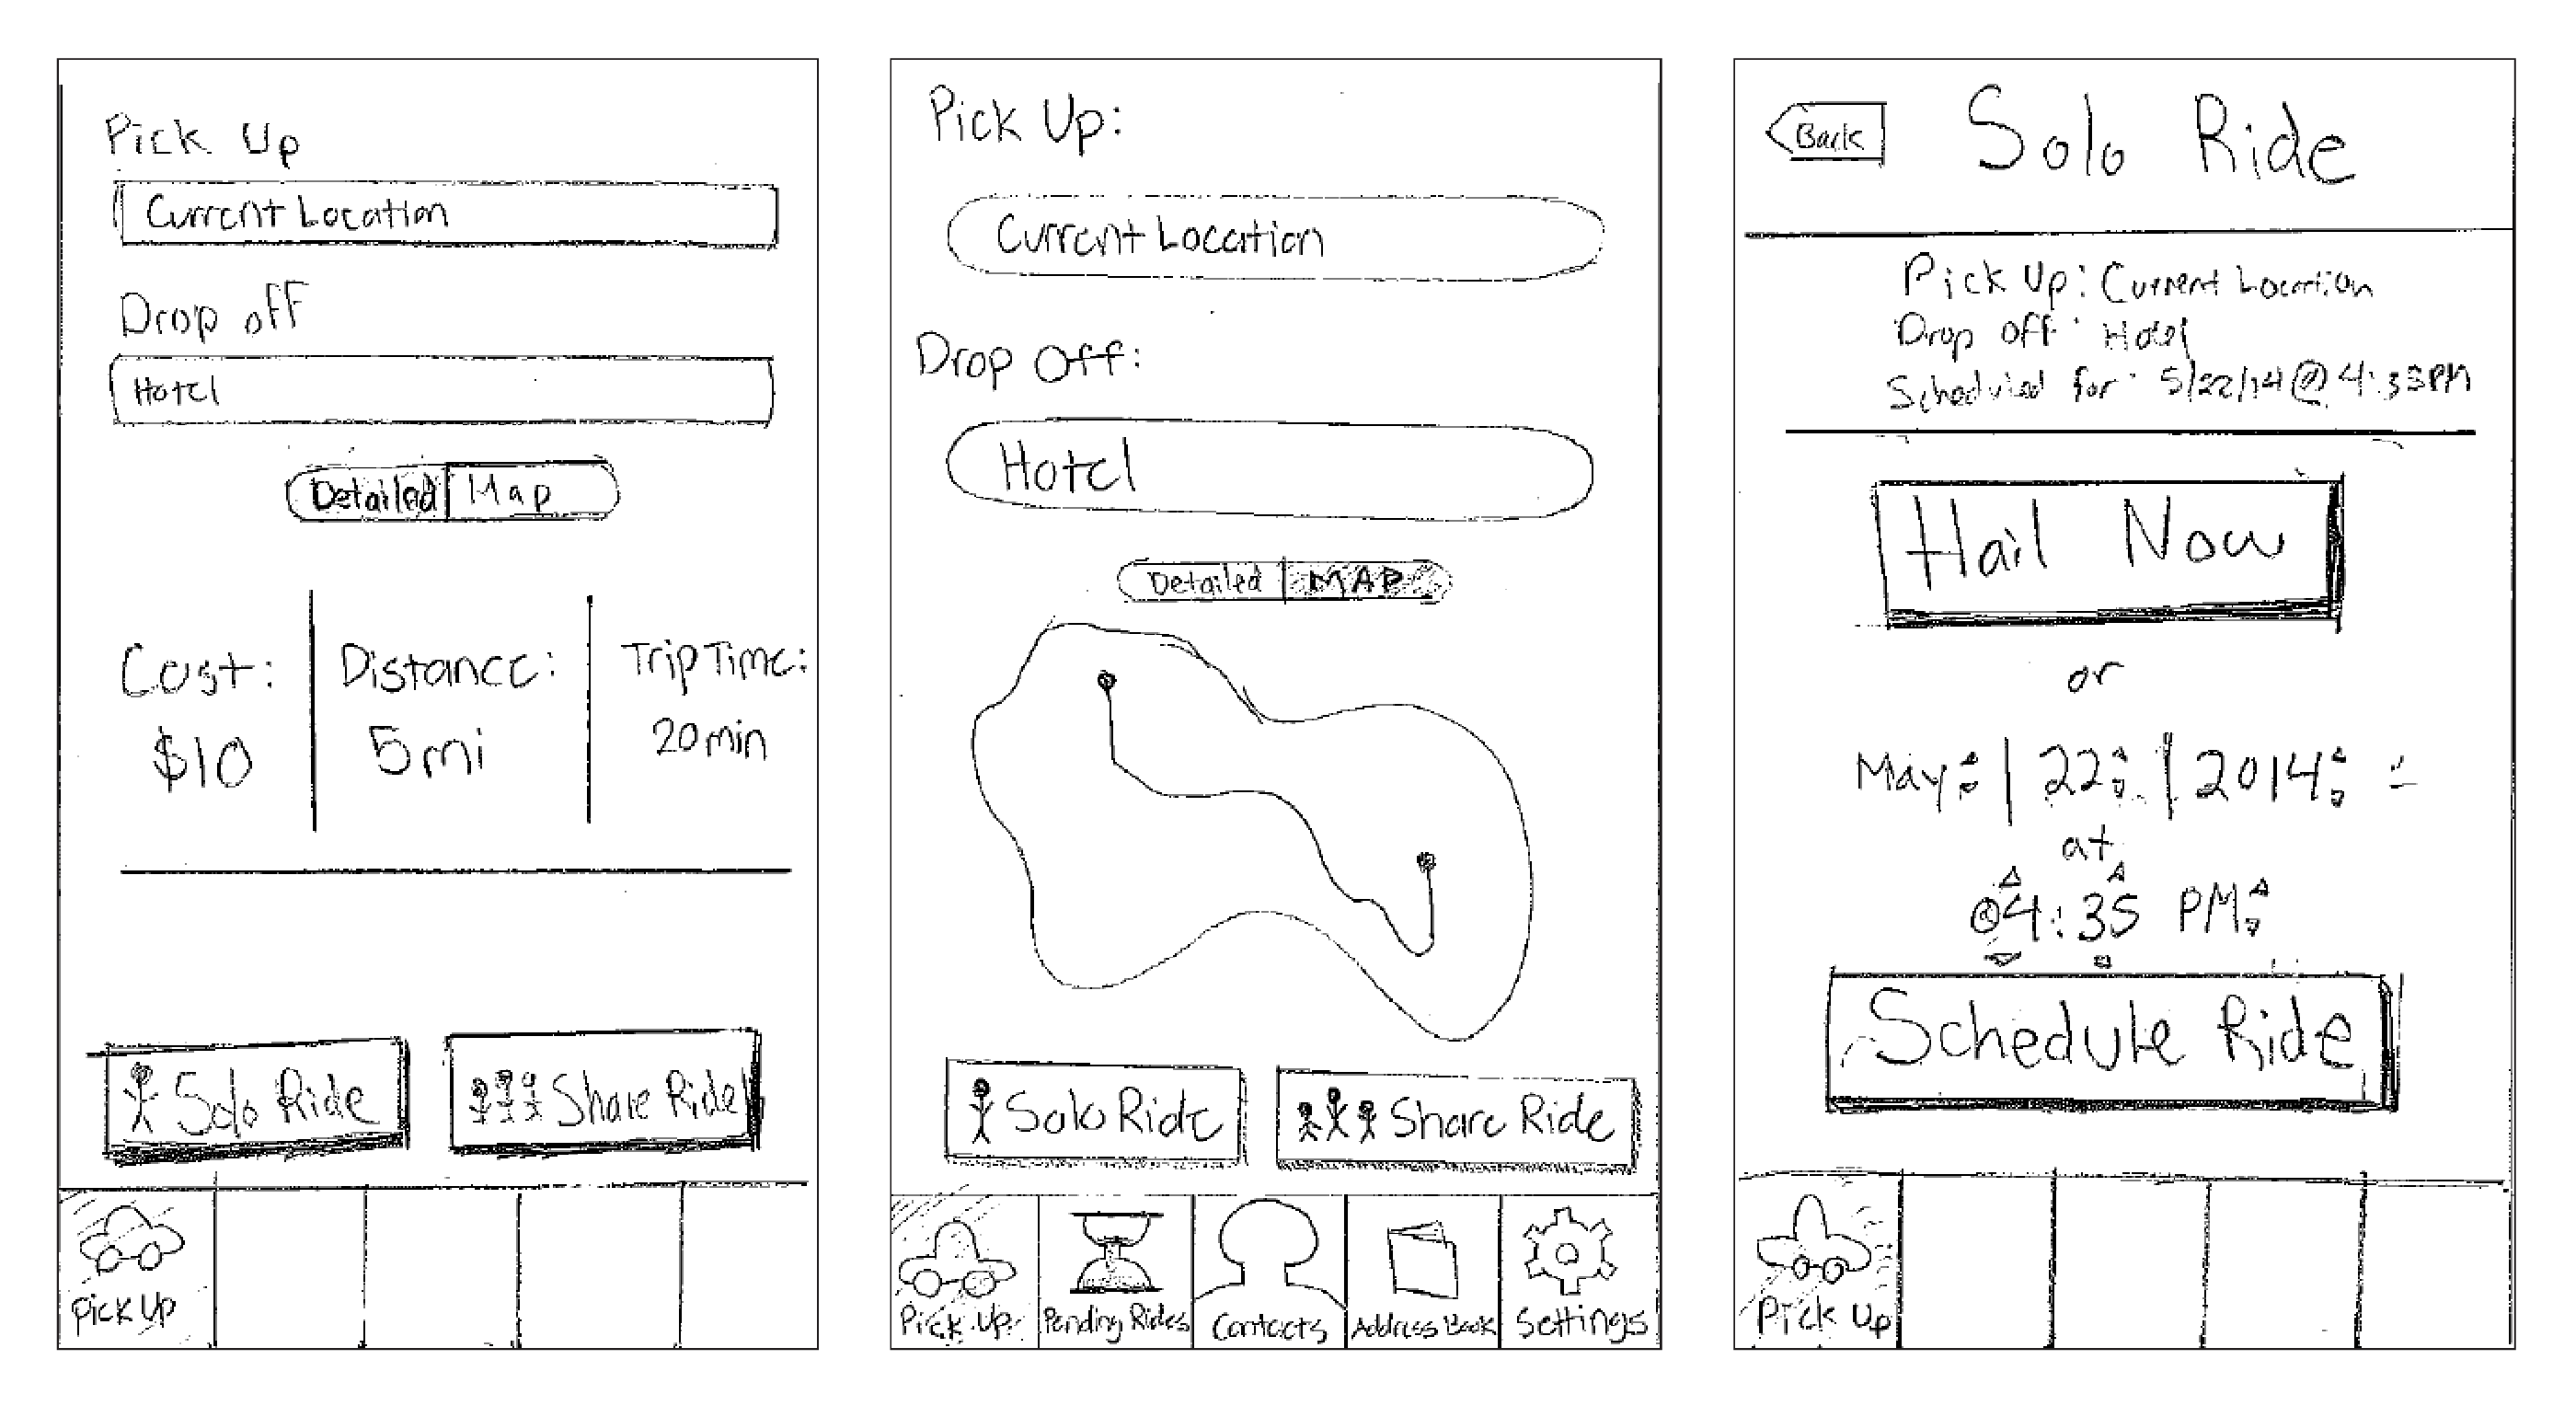 Pick Up
Current Location
Drop off
Hotel
Detailed Map
Cost: Distance: Trip Time:
$10 5mi 20min
Solo Ride Share Ride
Pick Up
Pick Up:
Current Location
Drop Off:
Hotel
Detailed MAP
Solo Ride Share Ride
Pick Up Pending Rides Contacts Address Book Settings
Back Solo Ride
Pick Up: Current Location
Drop off: Hotel
Scheduled for: 5/22/14 @ 4:35PM
Hail Now
or
May | 22 | 2014
at
@4:35 PM
Schedule Ride
Pick Up